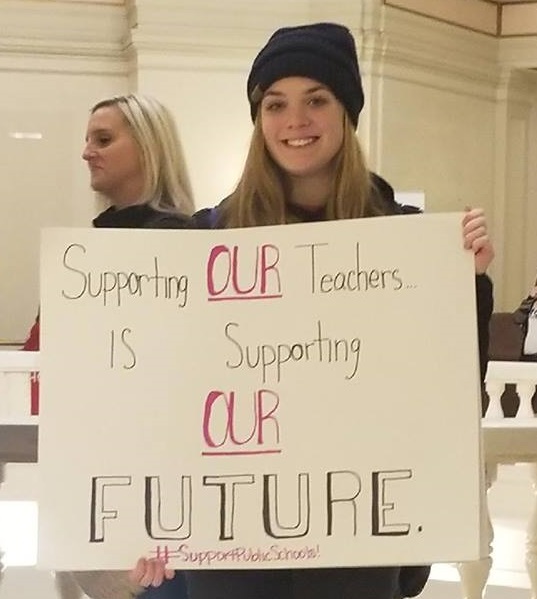 Supporting OUR Teachers...
IS Supporting
OUR
FUTURE.
#SupportPublicSchools!